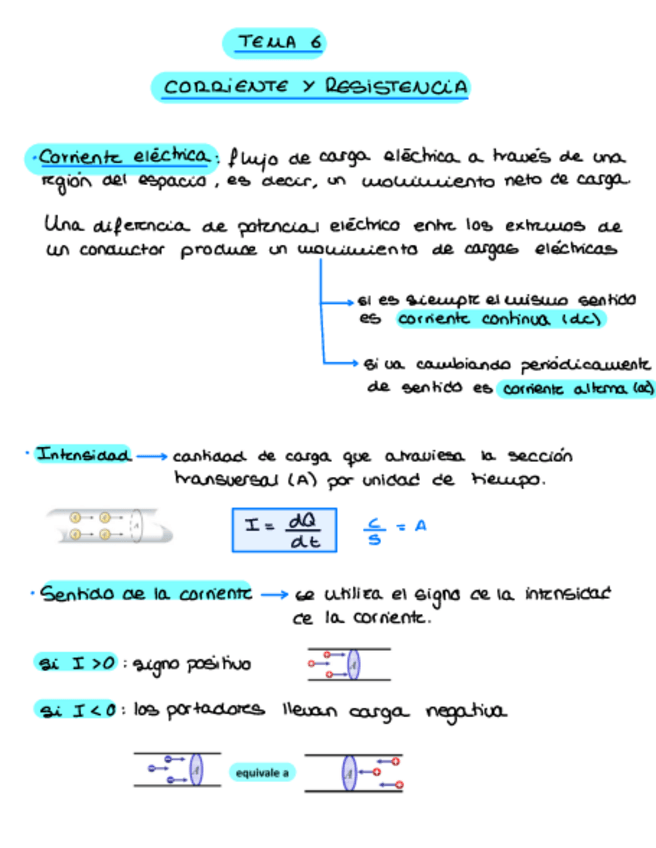 TEMA 6
CORRIENTE Y RESISTENCIA
· Corriente eléctrica: flujo de carga eléctrica a través de una
región del espacio, es decir, un movimiento neto de carga.
Una diferencia de potencial eléctrico entre los extremos de
un conductor produce un movimiento de cargas eléctricas
si es siempre el mismo sentido
es corriente continua (dc)
si va cambiando periódicamente
de sentido es corriente alterna (ac)
· Intensidad → cantidad de carga que atraviesa la sección
transversal (A) por unidad de tiempo.
I = dQ/dt C/S = A
· Sentido de la corriente → se utiliza el signo de la intensidad
de la corriente.
si I > 0 : signo positivo
A
si I < 0 : los portadores llevan carga negativa
A equivale a A